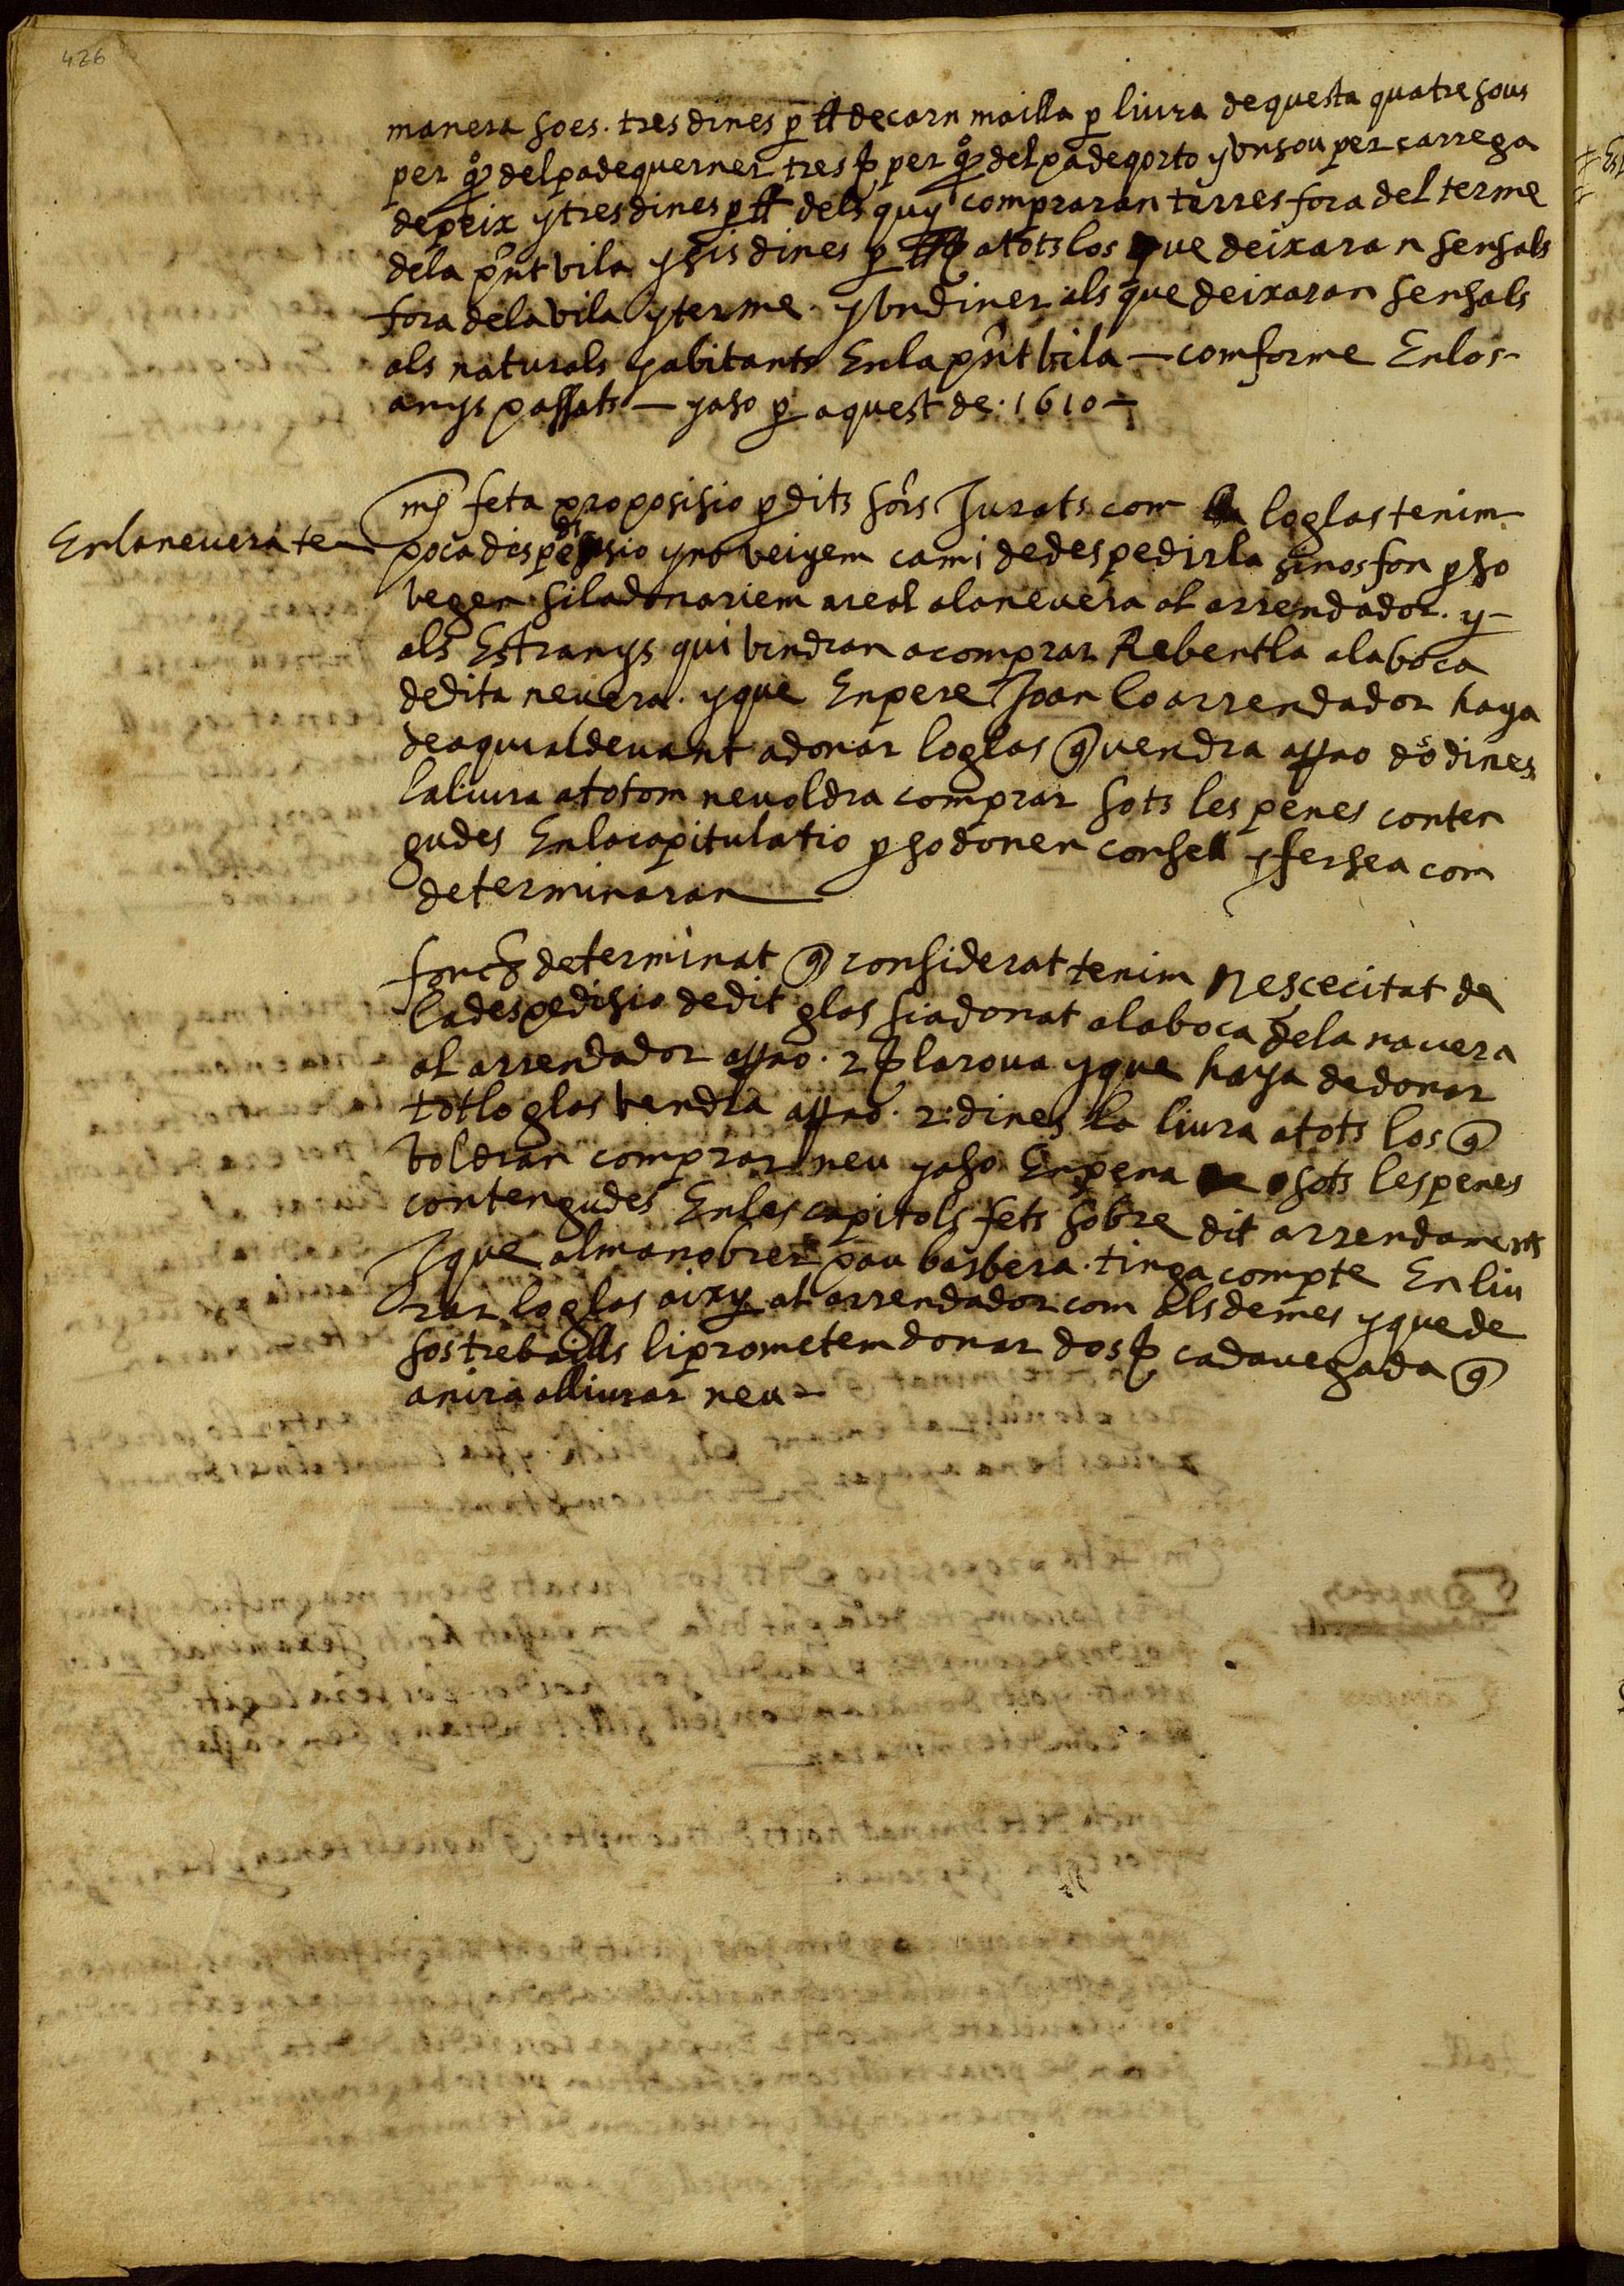 426
manera soes. tres dines p ll de carn mailla p liura de questa quatre sous
per qr del pa de querner tres s per qr del pa de qorto y vn sou per carrega
de peix y tres dines p ll dels quy compraran terres fora del terme
dela pnt vila y sis dines p ll a tots los que deixaran sensals
fora dela vila y terme. y vn diner als que deixaran sensals
als naturals y abitants En la pnt vila — comforme En los
anys passats — y aso p aquest de. 1610 —
En la nevera te
mes feta proposisio p dits sors Jurats com lo glas tenim
poca despedisio y no veiyem cami de despedirla sinos fon p so
vegen si la donariem a real a la nevera al arrendador. y
als Estranys qui vindran a comprar Rebentla a la boca
de dita nevera. y que En pere Joan lo arrendador haya
de aqui al devant a donar lo glas q vendra a rao dos dines
la liura a totom ne voldra comprar sots les penes conten
gudes En la capitulatio p so donen consell y fersea com
determinaran
fonch determinat q considerat tenim Nescecitat de
la despedisio de dit glas sia donat a la boca de la navera
al arrendador a rao. 2 s la rova y que haya de donar
tot lo glas vendra a rao. 2 dines la liura a tots los q
voldran comprar neu y aso En pena sots les penes
contengudes En les capitols fets sobre dit arrendament
Y que al manobrer pau barbera. tinga compte En liu
rar lo glas aixy al arrendador com als demes y que de
sos treballs li prometem donar dos s cada vegada q
anira a lliurar neu